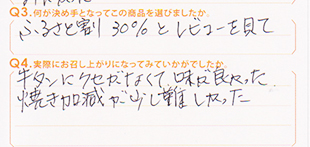 Q3.何が決め手となってこの商品を選びましたか。
ふるさと割 30%とレビューを見て
Q4.実際にお召し上がりになってみていかがでしたか。
牛タンにクセがなくて味が良かった
焼き加減が少し難しかった